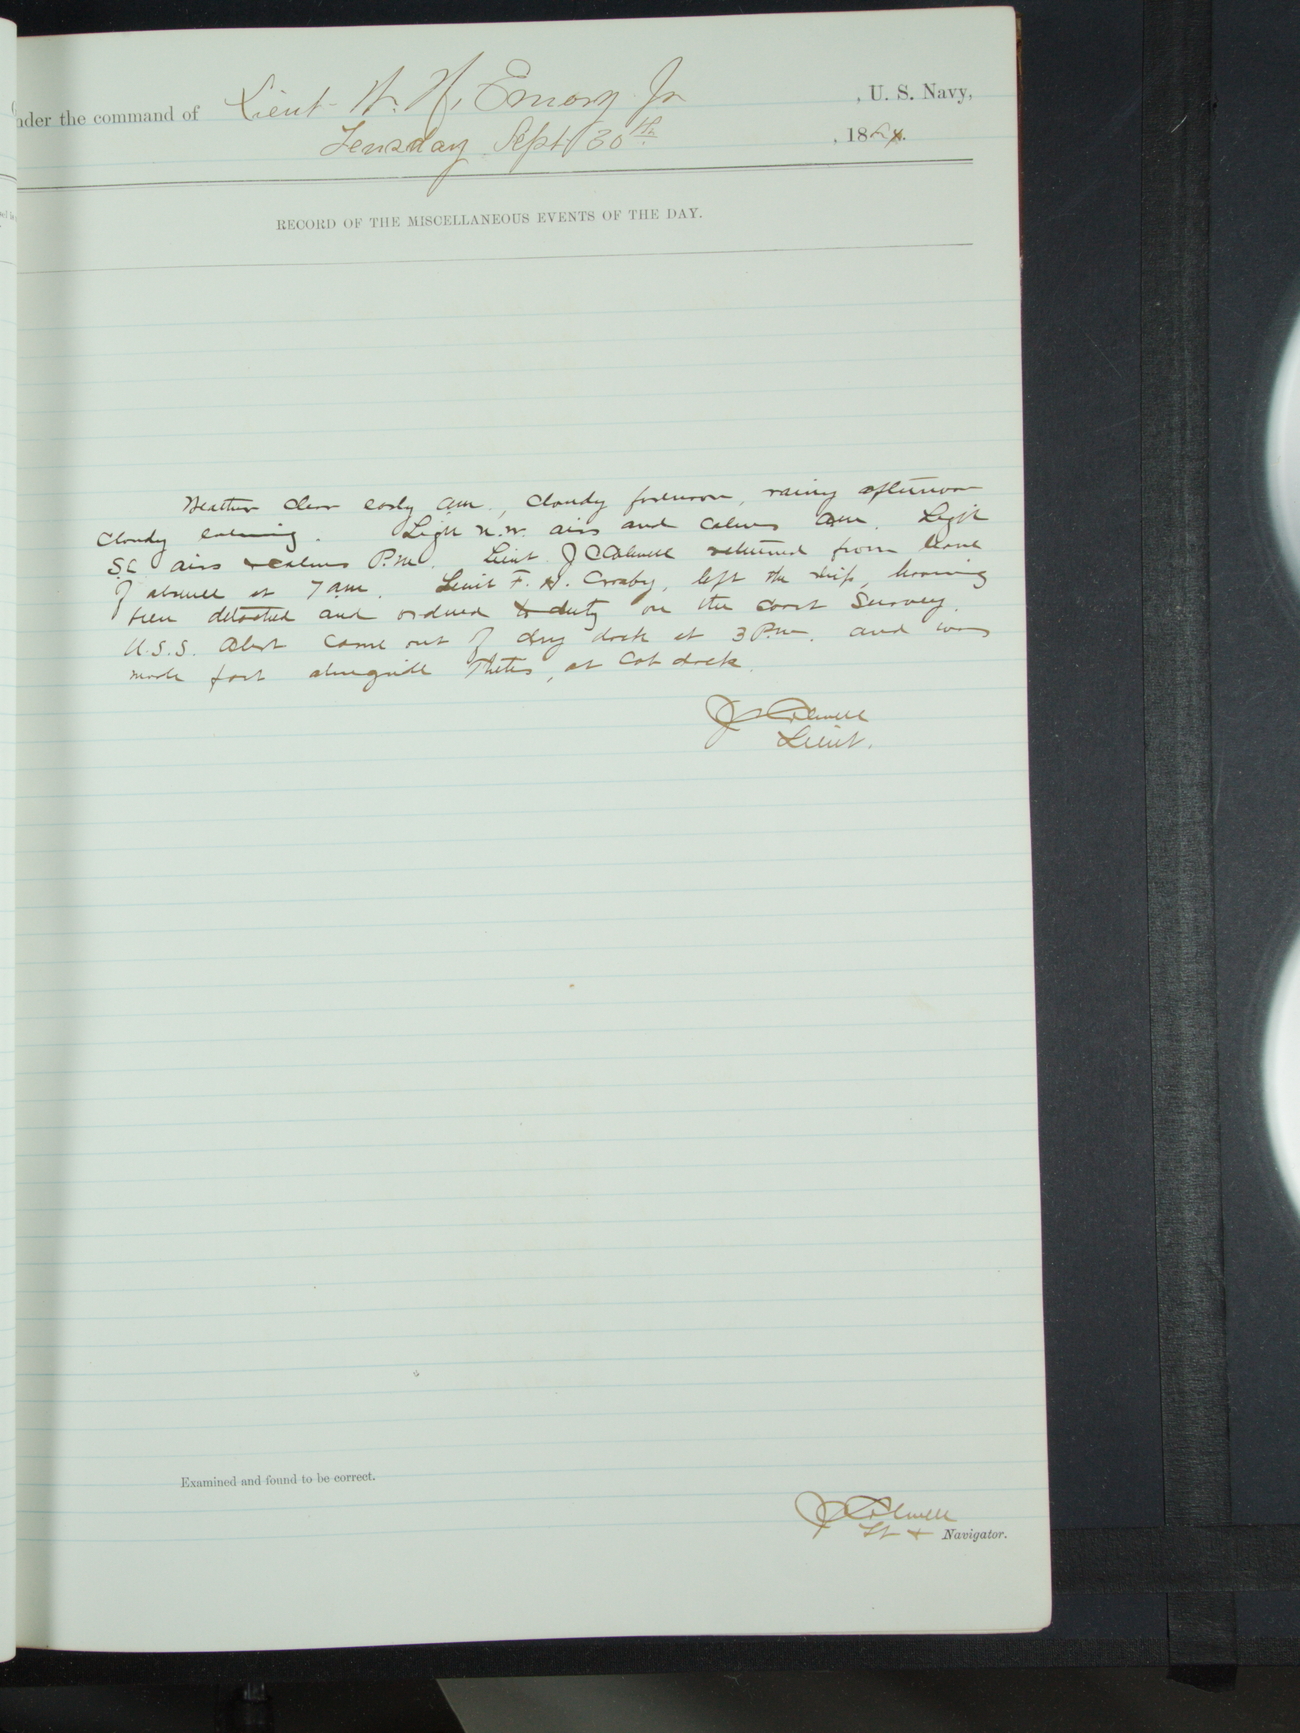 nder the command of Lieut W. H. Emory Jr , U. S. Navy,
Tuesday Sept 30th , 1884.
RECORD OF THE MISCELLANEOUS EVENTS OF THE DAY.
Weather clear early am., cloudy forenoon, rainy afternoon
cloudy evening. Light N.W. airs and calms am. Light
S.E airs & calms P.M. Lieut. J C Colwell returned from leave
of absence at 7 am. Lieut F. H. Crosby, left the ship, having
been detached and ordered to duty on the Coast Survey.
U.S.S. Alert came out of dry dock at 3 P.m. and was
made fast alongside Thetis, at Cob dock.
J C Colwell
Lieut.
Examined and found to be correct.
J C Colwell
Lt & Navigator.